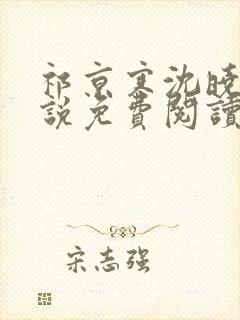 祁京寒沈晓
說免費閱讀
宋志强